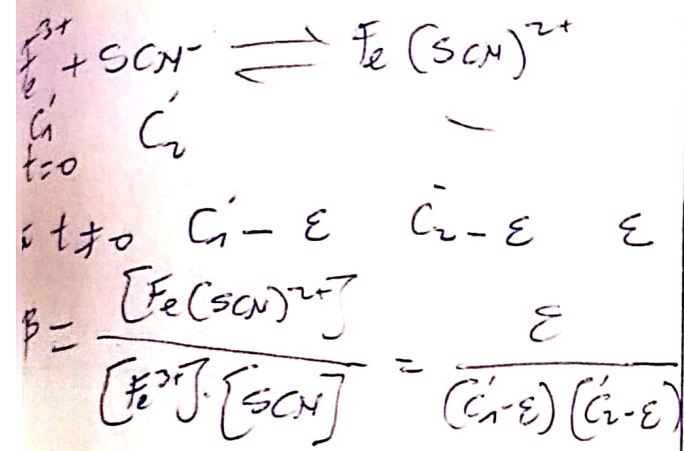 Fe³⁺ + SCN⁻ ⇌ Fe(SCN)²⁺
C₁' C₂' —
t=0
à t≠0 C₁'-ε C₂'-ε ε
β = [Fe(SCN)²⁺] / [Fe³⁺]·[SCN] = ε / (C₁'-ε)(C₂'-ε)